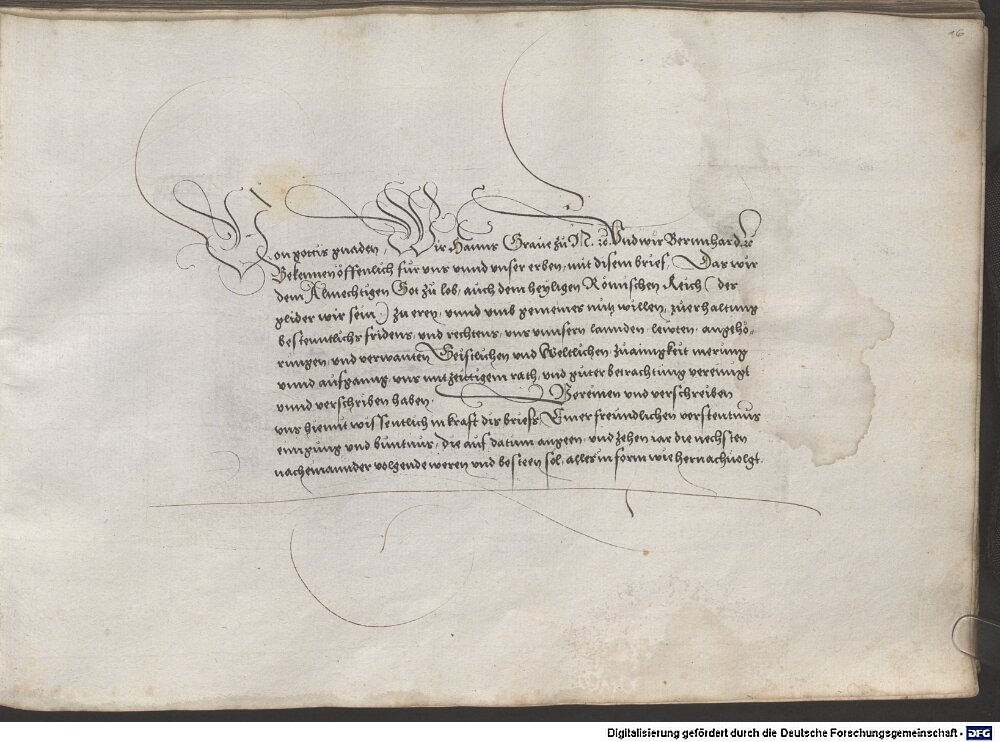 16
Von gottis gnaden, Wir Hanns Graue zů N. ꝛc. Vnd wir Bernnhard. ꝛc
Bekennen öffenlich für vns vnnd vnser erben, mit disem brief, Das wir
dem Almechtigen Got zů lob, auch dem heyligen Römischen Reich (der
glider wir sein) zu eren, vnnd vmb gemeines nutz willen, zůerhaltung
bestenntlichs fridens, vnd rechtens, vns vnnsern lannden, lewten, angehö-
rungen, vnd verwanten Geistlichen vnd Weltlichen, zůainigkeit merung
vnnd aufganng, vns mit zeittigem rath, vnd gůter betrachtung vereinigt
vnnd verschriben haben. Vereinen vnd verschreiben
vns hiemit wissentlich in kraft dis briefs, Einer freundlichen verstentnus
einigung vnd buntnus, die auf datum angeen, vnd zehen iar die nechsten
nacheinannder volgende weren vnd besteen sol, alles in form wie hernachuolgt.
Digitalisierung gefördert durch die Deutsche Forschungsgemeinschaft - DFG